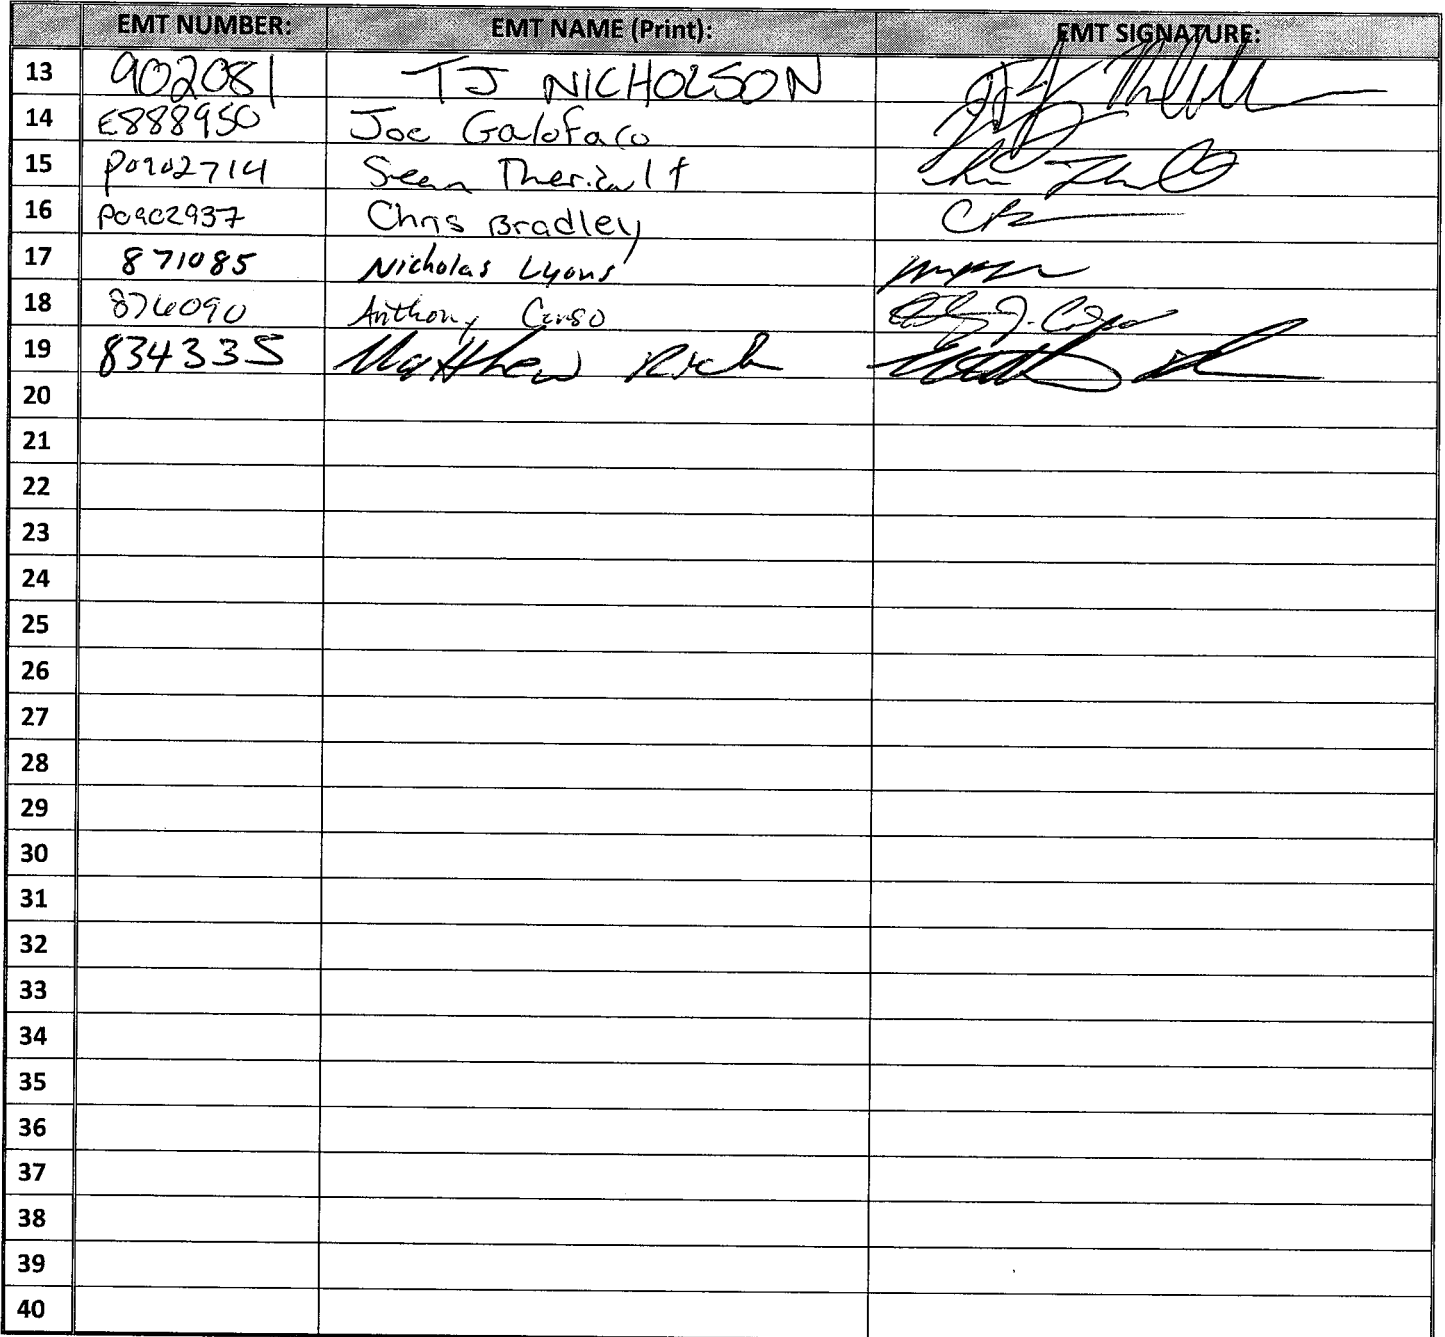 EMT NUMBER: EMT NAME (Print): EMT SIGNATURE:
13 902081 TJ NICHOLSON
14 E888950 Joe Galofaro
15 P0902714 Sean Theriault
16 P0902937 Chris Bradley
17 871085 Nicholas Lyons
18 876090 Anthony Caruso
19 834335 Matthew Rich
20
21
22
23
24
25
26
27
28
29
30
31
32
33
34
35
36
37
38
39
40